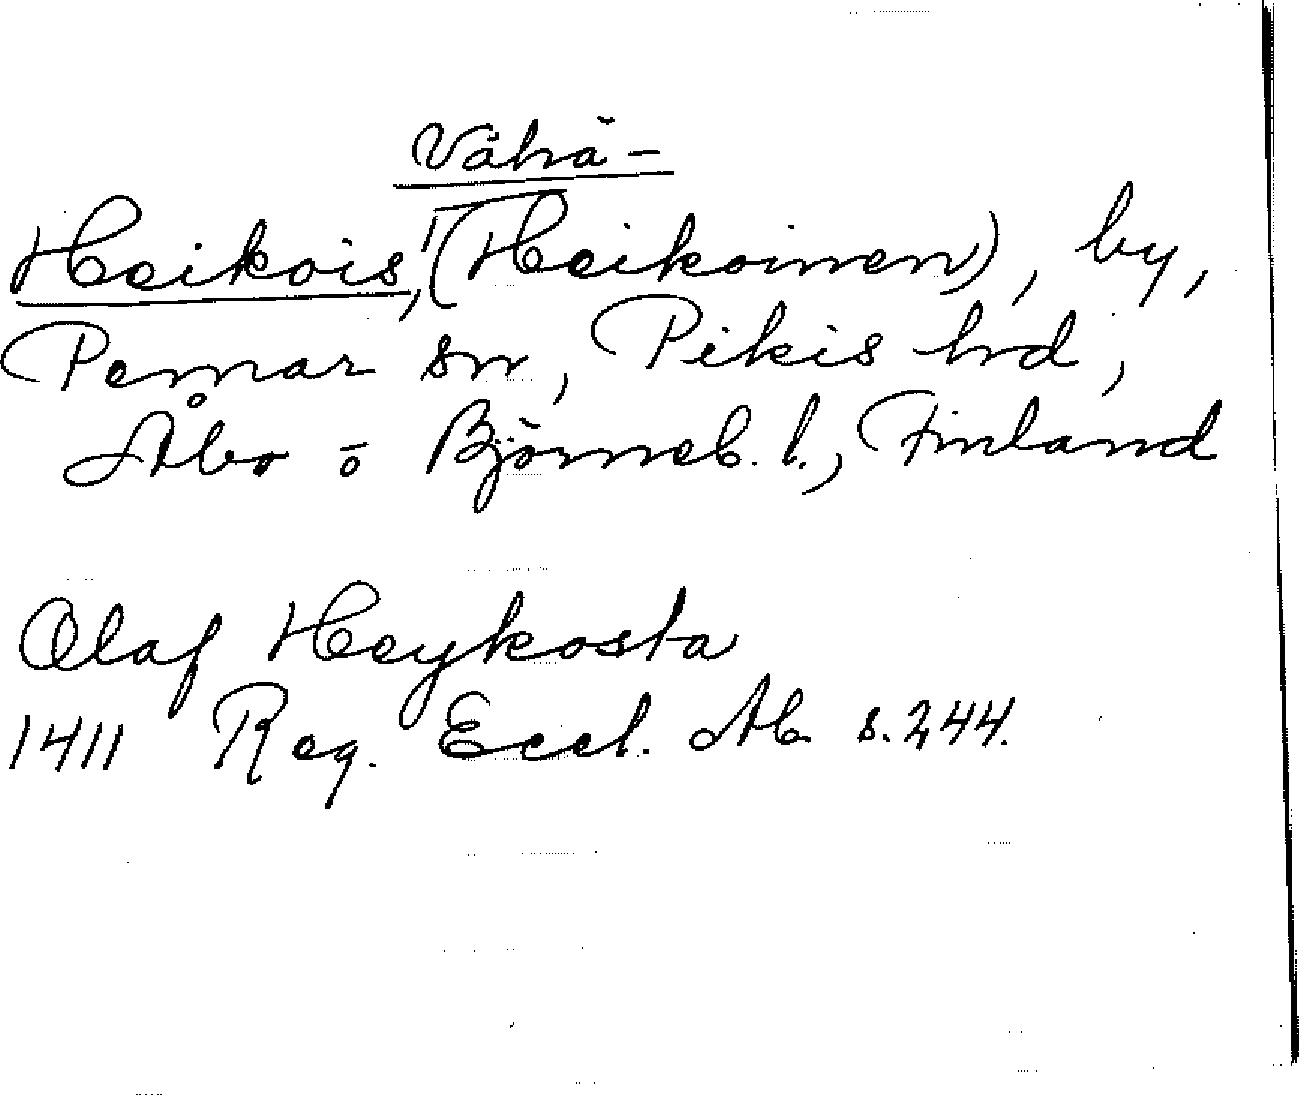 Vähä-
Heikois, (Heikoinen), by,
Pemar sn, Pikis hd,
Åbo o Björneb. l., Finland
Olaf Heykosta
1411 Reg. Eccl. Ab. s. 244.